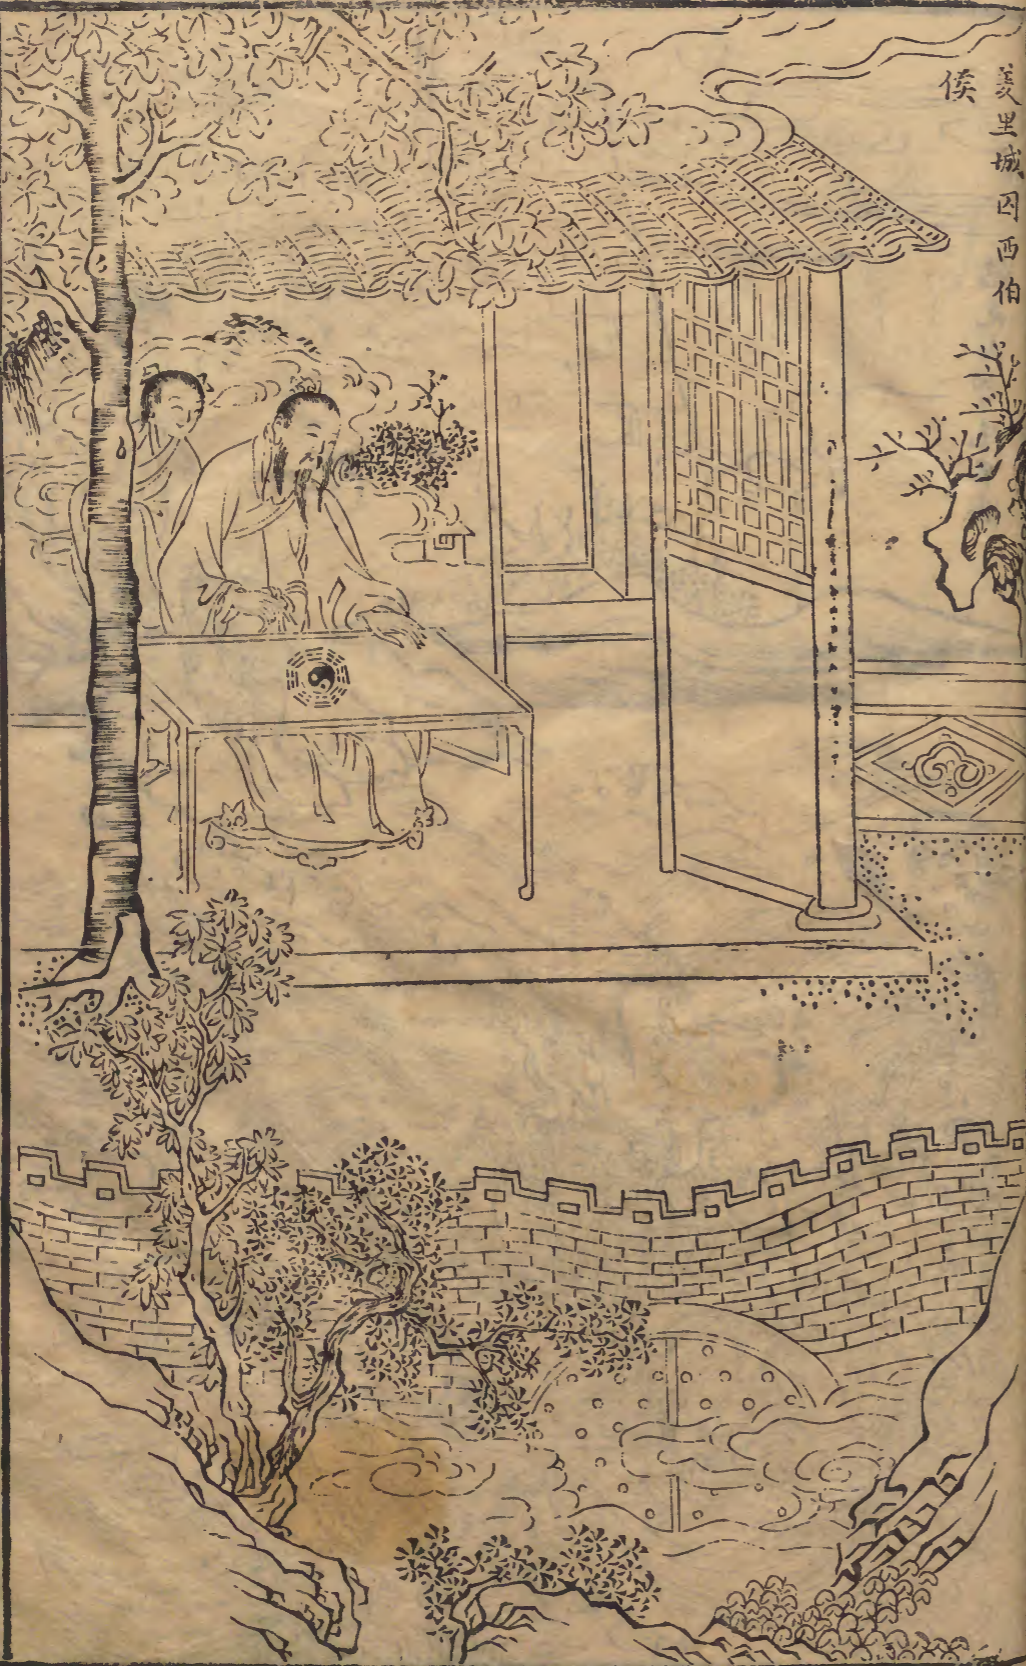 羑里城囚西伯
侯